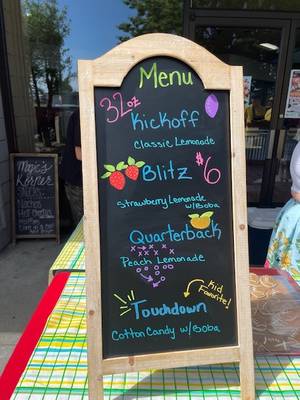 Menu
32oz
Kickoff
Classic Lemonade
Blitz $6
Strawberry Lemonade
w/Boba
Quarterback
Peach Lemonade
Kid
Favorite!
Touchdown
Cotton Candy w/Boba
Korner
Nachos